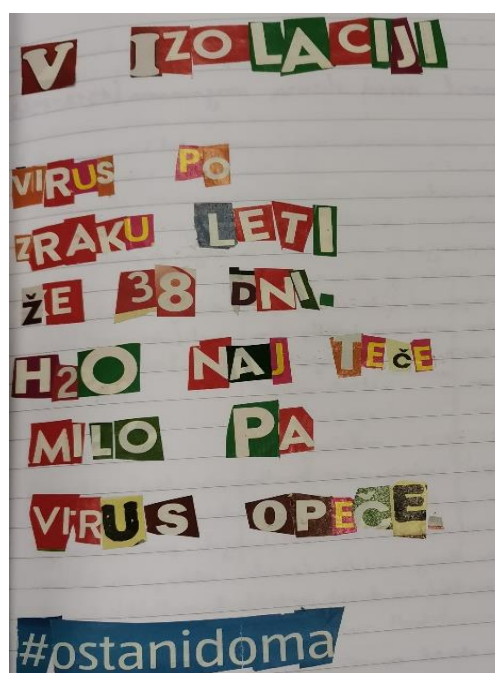 V IZOLACIJI
VIRUS PO
ZRAKU LETI
ŽE 38 DNI.
H2O NAJ TEČE
MILO PA
VIRUS OPEČE.
#ostanidoma